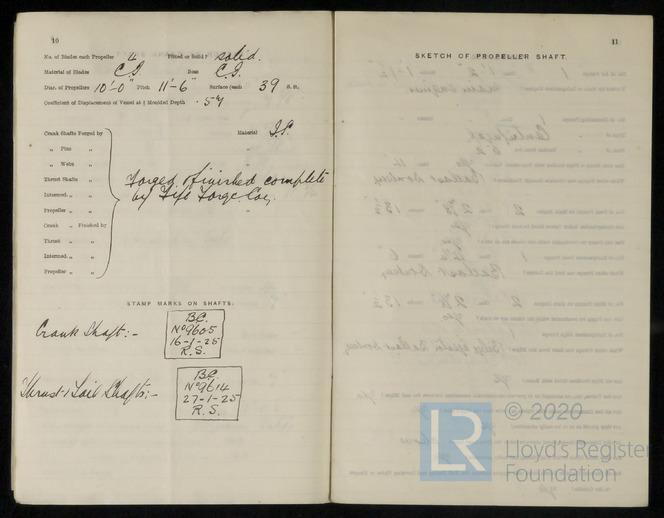 10
No. of Blades each Propeller 4 Fitted or Solid? solid.
Material of Blades C.I. Boss C.I.
Diar. of Propellers 10'-0" Pitch 11'-6" Surface (each) 39 S. ft.
Coefficient of Displacement of Vessel at ½ Moulded Depth .54
Crank Shafts Forged by Material I.S.
„ Pins „ „
„ Webs „ „
Thrust Shafts „ „
Intermed. „ „ forged & finished complete
Propeller „ „ by Fife Forge Coy.
Crank „ Finished by
Thrust „ „
Intermed. „ „
Propeller „ „
STAMP MARKS ON SHAFTS.
Crank Shaft:-
B.C.
No 9605
16-1-25
R.S.
Thrust & Tail Shafts:-
B.C.
No 9614
27-1-25
R.S.
11
SKETCH OF PROPELLER SHAFT.
LR
© 2020
Lloyd's Register
Foundation